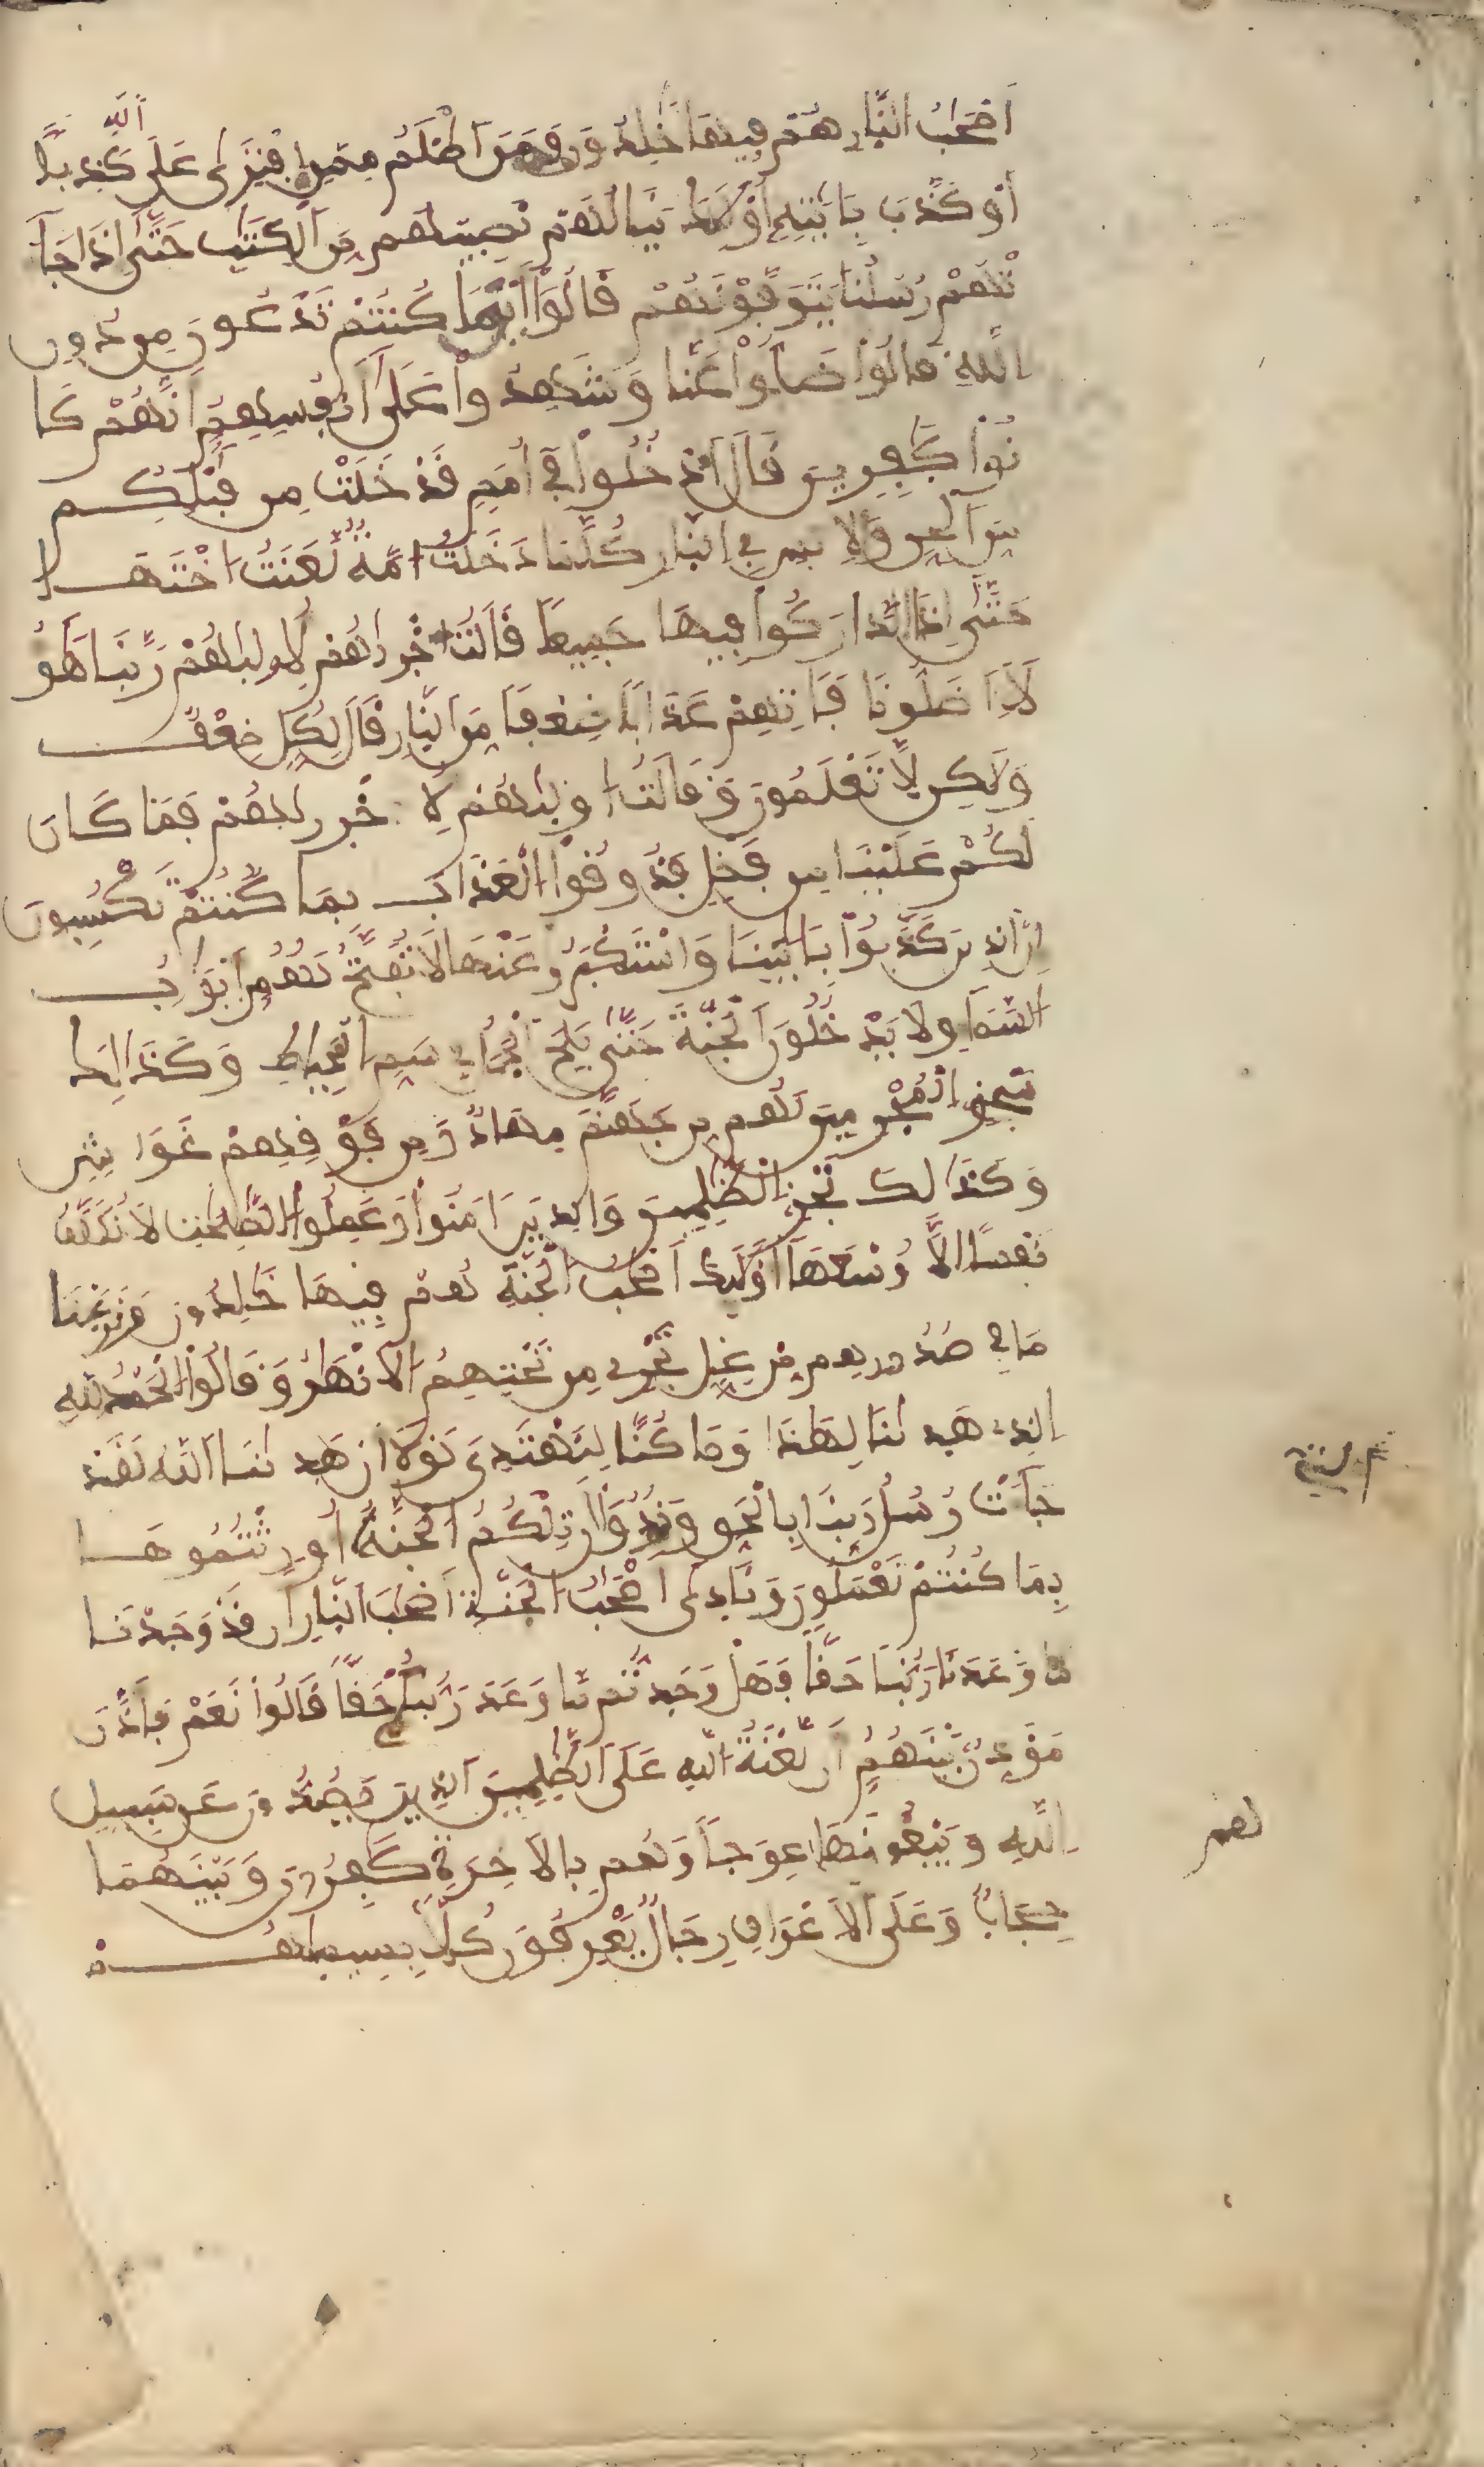 أَصْحَٰبُ النّارِ هُمْ فِيهَا خَٰلِدُونَ فَمَنَ اَظْلَمُ مِمَّنِ اِفْتَرَىٰ عَلَى اَللَّهِ كَذِباً
أَوْ كَذَّبَ بِـَٔايَٰتِهِ أُوْلَٰئِكَ يَنَالُهُمْ نَصِيبُهُم مِّنَ اَلْكِتَٰبِ حَتَّىٰ إِذَا جَآ
ءَتْهُمْ رُسُلُنَا يَتَوَفَّوْنَهُمْ قَالُوٓاْ أَيْنَمَا كُنتُمْ تَدْعُونَ مِن دُونِ
اللَّهِ قَالُواْ ضَلُّواْ عَنَّا وَشَهِدُواْ عَلَىٰ أَنفُسِهِمْ أَنَّهُمْ كَا
نُواْ كَٰفِرِينَ قَالَ اَدْخُلُواْ فِى أُمَمٍ قَدْ خَلَتْ مِن قَبْلِكُم
مِّنَ اَلْجِنِّ وَالِانسِ فِى اِلنّارِ كُلَّمَا دَخَلَتُ امَّةٌ لَّعَنَتُ اخْتَهَا
حَتَّىٰ إِذَا اَدَّارَكُواْ فِيهَا جَمِيعاً قَالَتُ اخْرَىٰهُمْ لِأُولَىٰهُمْ رَبَّنَا هَٰٓؤُ
لَآءِ اَضَلُّونَا فَـَٔاتِهِمْ عَذَاباً ضِعْفاً مِّنَ اَلنّارِ قَالَ لِكُلٍّ ضِعْفٌ
وَلَٰكِن لاَّ تَعْلَمُونَ وَقَالَتُ اولَىٰهُمْ لِأُخْرَىٰهُمْ فَمَا كَانَ
لَكُمْ عَلَيْنَا مِن فَضْلٍ فَذُوقُواْ الْعَذَابَ بِمَا كُنتُمْ تَكْسِبُونَ
إِنَّ اَلذِينَ كَذَّبُواْ بِـَٔايَٰتِنَا وَاسْتَكْبَرُواْ عَنْهَا لَا تُفَتَّحُ لَهُمُ أَبْوَٰبُ
السَّمَآءِ وَلَا يَدْخُلُونَ اَلْجَنَّةَ حَتَّىٰ يَلِجَ اَلْجَمَلُ فِى سَمِّ اِلْخِيَاطِ وَكَذَٰلِكَ
نَجْزِى اِلْمُجْرِمِينَ لَهُم مِّن جَهَنَّمَ مِهَادٌ وَمِن فَوْقِهِمْ غَوَاشٍ
وَكَذَٰلِكَ نَجْزِى اِلظَّٰلِمِينَ وَالذِينَ ءَامَنُواْ وَعَمِلُواْ الصَّٰلِحَٰتِ لَا نُكَلِّفُ
نَفْساً إِلاَّ وُسْعَهَآ أُوْلَٰئِكَ أَصْحَٰبُ الْجَنَّةِ هُمْ فِيهَا خَٰلِدُونَ وَنَزَعْنَا
مَا فِى صُدُورِهِم مِّنْ غِلٍّ تَجْرِى مِن تَحْتِهِمُ اَلَانْهَٰرُ وَقَالُواْ الْحَمْدُ لِلهِ
اِلذِى هَدَىٰنَا لِهَٰذَا وَمَا كُنَّا لِنَهْتَدِىَ لَوْلَا أَنْ هَدَىٰنَا اَللَّهُ لَقَدْ
جَآءَتْ رُسُلُ رَبِّنَا بِالْحَقِّ وَنُودُواْ أَن تِلْكُمُ اَلْجَنَّةُ أُورِثْتُمُوهَا
بِمَا كُنتُمْ تَعْمَلُونَ وَنَادَىٰ أَصْحَٰبُ اَلْجَنَّةِ أَصْحَٰبَ اَلنّارِ أَن قَدْ وَجَدْنَا
مَا وَعَدَنَا رَبُّنَا حَقّاً فَهَلْ وَجَدتُّم مَّا وَعَدَ رَبُّكُمْ حَقّاً قَالُواْ نَعَمْ فَأَذَّنَ
مُؤَذِّنٌ بَيْنَهُمُ أَن لَّعْنَةُ اللَّهِ عَلَى اَلظَّٰلِمِينَ اَلذِينَ يَصُدُّونَ عَن سَبِيلِ
اِللَّهِ وَيَبْغُونَهَا عِوَجاً وَهُم بِالَاخِرَةِ كَٰفِرُونَ وَبَيْنَهُمَا
حِجَابٌ وَعَلَى اَلَاعْرَافِ رِجَالٌ يَعْرِفُونَ كُلّاً بِسِيمَٰهُمْ